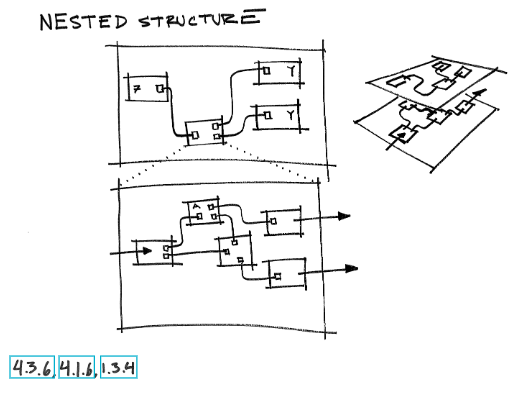 NESTED STRUCTURE
7
Y
Y
A
4.3.6, 4.1.6, 1.3.4